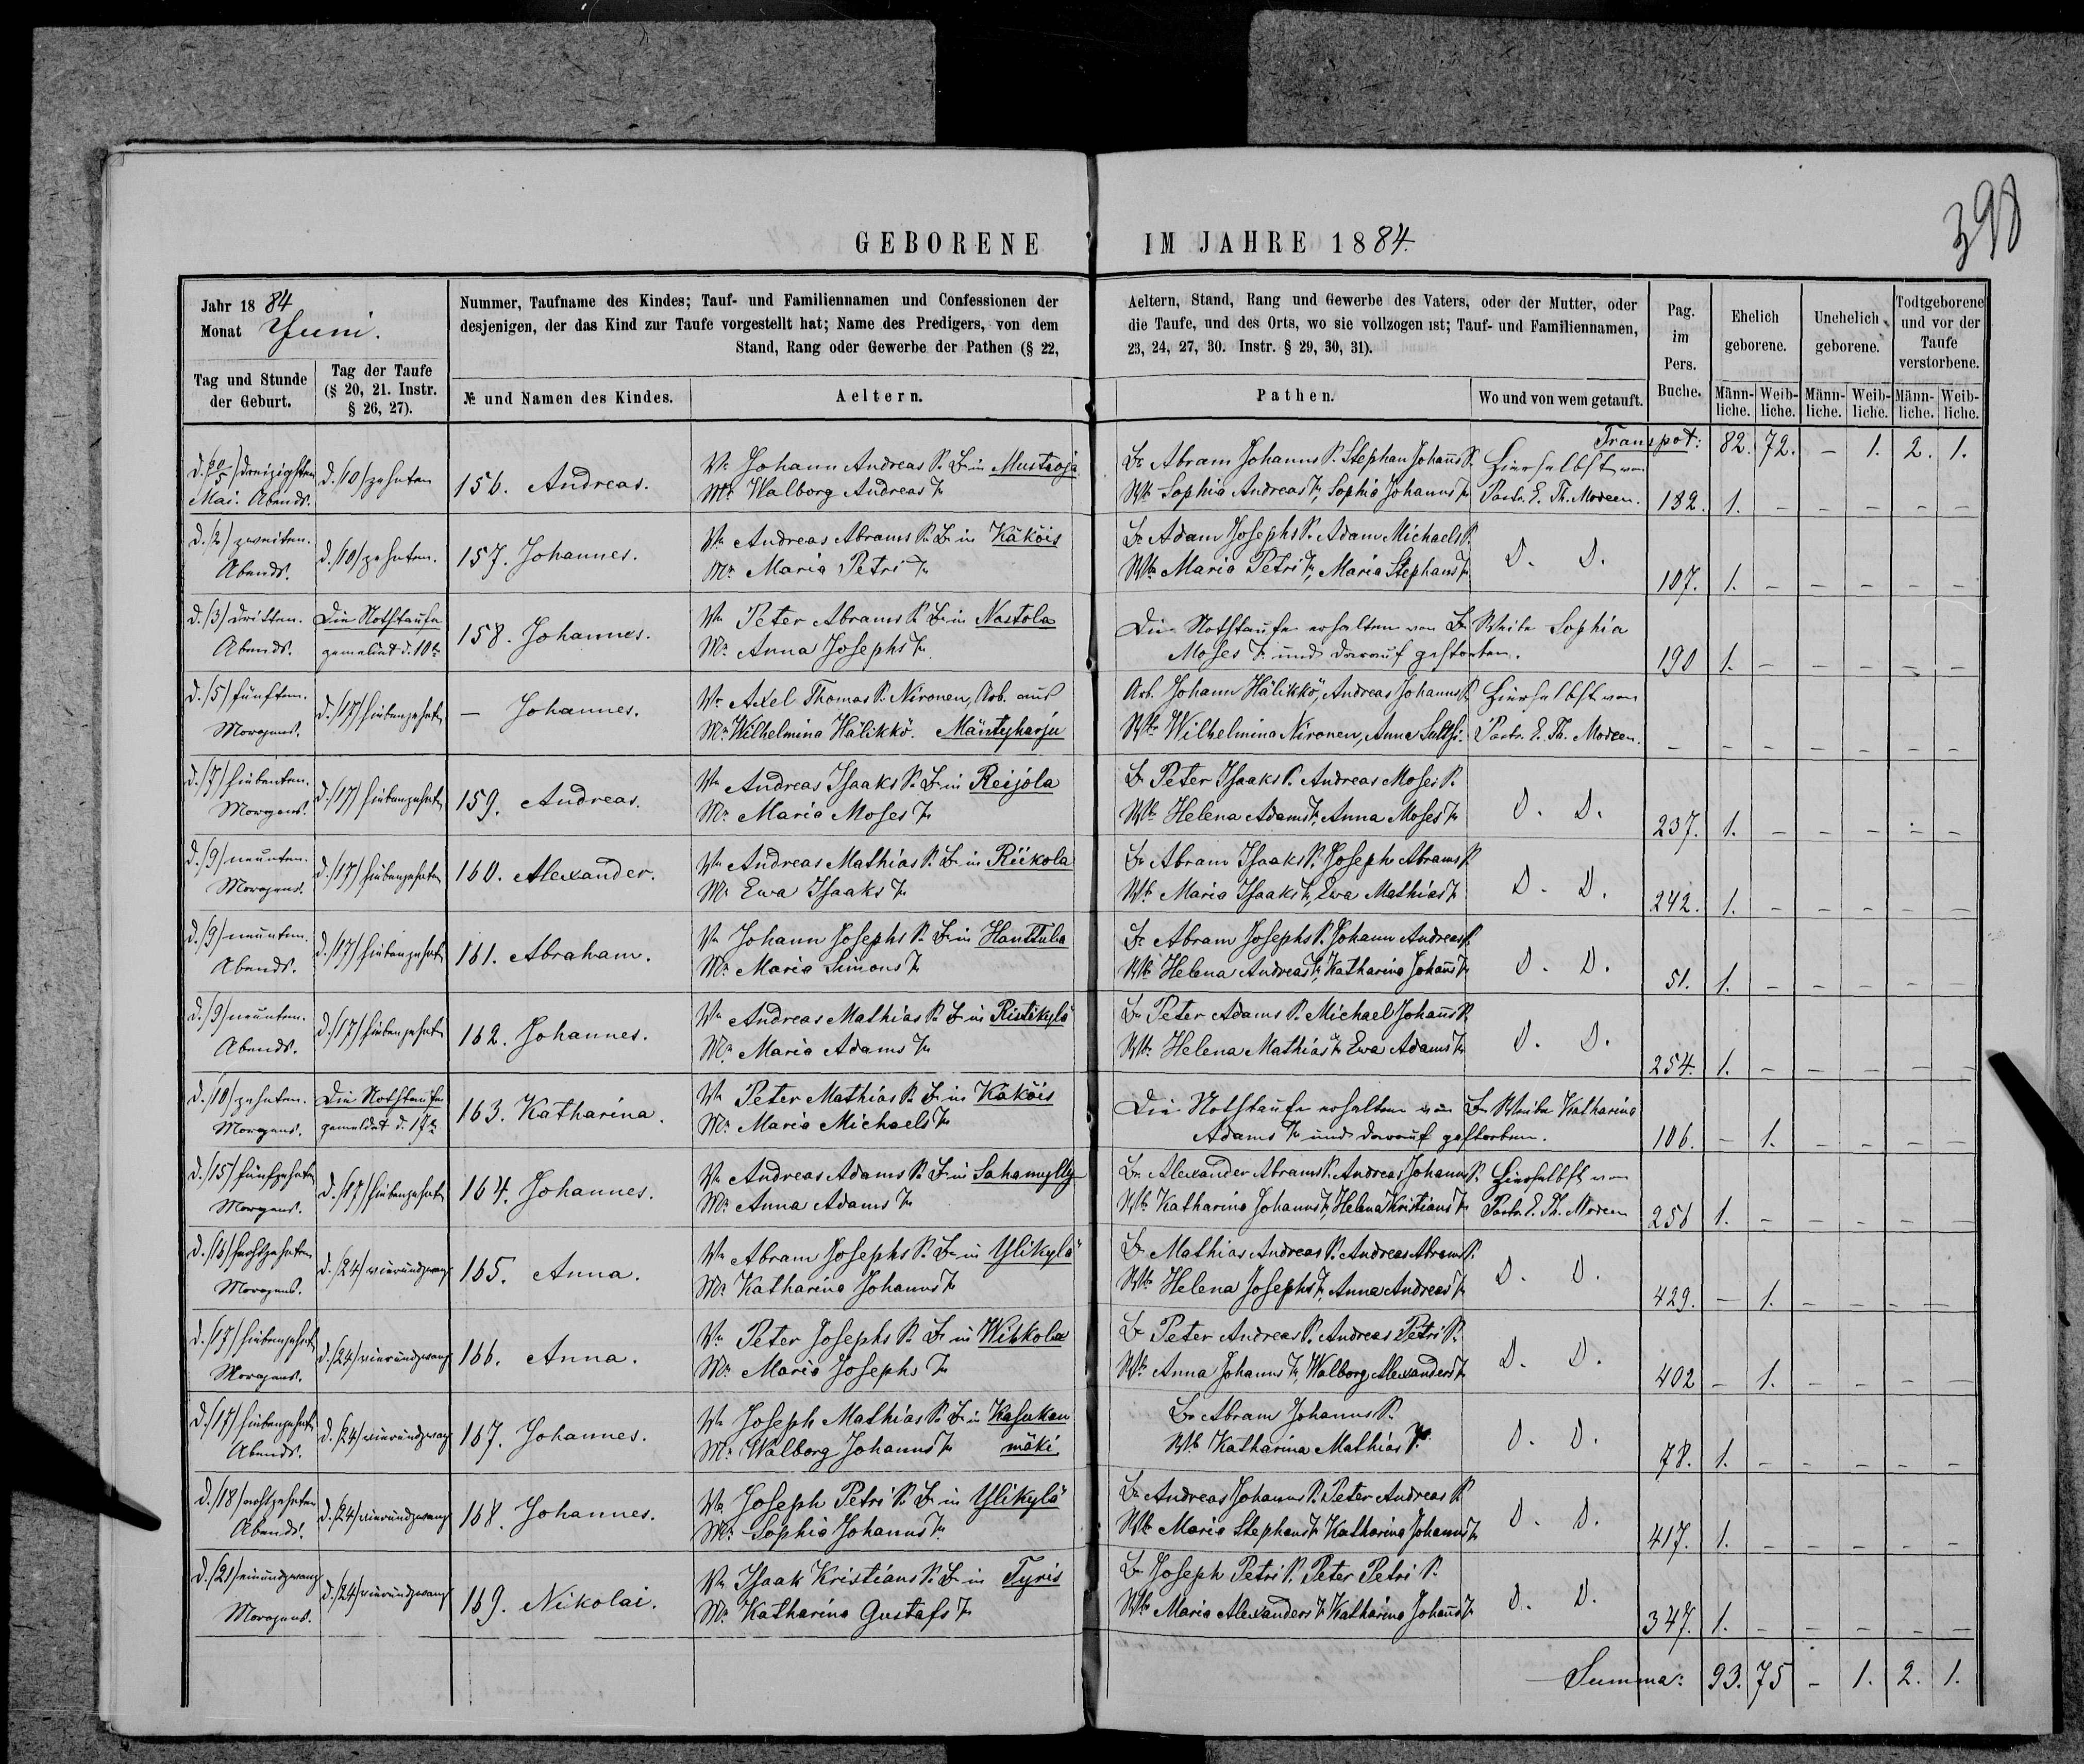 398
GEBORENE IM JAHRE 1884.
Jahr 1884
Monat Juni.
Nummer, Taufname des Kindes; Tauf- und Familiennamen und Confessionen der Aeltern, Stand, Rang und Gewerbe des Vaters, oder der Mutter, oder
desjenigen, der das Kind zur Taufe vorgestellt hat; Name des Predigers, von dem die Taufe, und des Orts, wo sie vollzogen ist; Tauf- und Familiennamen,
Stand, Rang oder Gewerbe der Pathen (§ 22, 23, 24, 27, 30. Instr. § 29, 30, 31).
Tag und Stunde der Geburt.
Tag der Taufe (§ 20, 21. Instr. § 26, 27).
№ und Namen des Kindes.
Aeltern.
Pathen.
Wo und von wem getauft.
Pag. im Pers. Buche.
Ehelich geborene.
Unehelich geborene.
Todtgeborene und vor der Taufe verstorbene.
Männ-liche. Weib-liche. Männ-liche. Weib-liche. Männ-liche. Weib-liche.
Transpot: 82. 72. – 1. 2. 1.
d. (30/5) dreizigsten Mai. Abends.
d. (10) zehnten
156. Andreas.
Vr. Johann Andreas S. Br. in Mustaoja
Mr. Walborg Andreas Tr.
Br. Abram Johanns S. Stephan Johanns S.
Wbr. Sophia Andreas Tr. Sophia Johanns Tr.
Hierselbst von
Pastr. E. Th. Modeen.
182. 1. – – – – –
d. (2) zweiten. Abends.
d. (10) zehnten.
157. Johannes.
Vr. Andreas Abrams S. Br. in Käköis
Mr. Maria Petri Tr.
Br. Adam Josephs S. Adam Michaels S.
Wbr. Maria Petri Tr, Maria Stephans Tr.
D. D.
107. 1. – – – – –
d. (3) dritten. Abends.
Die Nothtaufe gemeldet d. 10ten
158. Johannes.
Vr. Peter Abrams S. Br. in Nastola
Mr. Anna Josephs Tr.
Die Nothtaufe erhalten von Br. Weibe Sophia
Moses Tr. und darauf gestorben.
190 1. – – – – –
d. (5) fünften. Morgens.
d. (17) siebenzehnt.
– Johannes.
Vr. Axel Thomas S. Nironen, Arb. aus
Mr. Wilhelmina Hälikkö. Mäntyharju
Arb. Johann Hälikkö, Andreas Johanns S.
Wbr. Wilhelmina Nironen, Anna
Hierselbst von
Pastr. E. Th. Modeen.
– – – – – – –
d. (7) siebenten. Morgens.
d. (17) siebenzehnt.
159. Andreas.
Vr. Andreas Isaaks S. Br. in Reijola
Mr. Maria Moses Tr.
Br. Peter Isaaks S. Andreas Moses S.
Wbr. Helena Adams Tr, Anna Moses Tr.
D. D.
237. 1. – – – – –
d. (9) neunten. Morgens.
d. (17) siebenzehnten
160. Alexander.
Vr. Andreas Mathias S. Br. in Riikola
Mr. Ewa Isaaks Tr.
Br. Abram Isaaks S. Joseph Abrams S.
Wbr. Maria Isaaks Tr, Ewa Mathias Tr.
D. D.
242. 1. – – – – –
d. (9) neunten. Abends.
d. (17) siebenzehnt.
161. Abraham.
Vr. Johann Josephs S. Br. in Hanttula
Mr. Maria Simons Tr.
Br. Abram Josephs S. Johann Andreas S.
Wbr. Helena Andreas Tr, Katharina Johanns Tr.
D. D.
51. 1. – – – – –
d. (9) neunten. Abends.
d. (17) siebenzehnt.
162. Johannes.
Vr. Andreas Mathias S. Br. in Ristikylä
Mr. Maria Adams Tr.
Br. Peter Adams S. Michael Johanns S.
Wbr. Helena Mathias Tr. Ewa Adams Tr.
D. D.
254. 1. – – – – –
d. (10) zehnten. Morgens.
Die Nothtaufe gemeldet d. 17ten
163. Katharina.
Vr. Peter Mathias S. Br. in Käköis
Mr. Maria Michaels Tr.
Die Nothtaufe erhalten von Br. Weibe Katharina
Adams Tr. und darauf gestorben.
106. – 1. – – – –
d. (15) fünfzehnt. Morgens.
d. (17) siebenzehnt.
164. Johannes.
Vr. Andreas Adams S. Br. in Sahamylly
Mr. Anna Adams Tr.
Br. Alexander Abrams S. Andreas Johanns S.
Wbr. Katharina Johanns Tr, Helena Kristians Tr.
Hierselbst von
Pastr. E. Th. Modeen
256 1. – – – – –
d. (16) sechszehnten Morgens.
d. (24) vierundzwanz.
165. Anna.
Vr. Abram Josephs S. Br. in Ylikylä
Mr. Katharina Johanns Tr.
Br. Mathias Andreas S. Andreas Abrams S.
Wbr. Helena Josephs Tr, Anna Andreas Tr.
D. D.
429. – 1. – – – –
d. (17) siebenzehnt. Morgens.
d. (24) vierundzwanz.
166. Anna.
Vr. Peter Josephs S. Br. in Wiskola
Mr. Maria Josephs Tr.
Br. Peter Andreas S. Andreas Petri S.
Wbr. Anna Johanns Tr, Walborg Alexanders Tr.
D. D.
402 – 1. – – – –
d. (17) siebenzehnt. Abends.
d. (24) vierundzwanz.
167. Johannes.
Vr. Joseph Mathias S. Br. in Kasukan
Mr. Walborg Johanns Tr. mäki
Br. Abram Johanns S.
Wb. Katharina Mathias T.
D. D.
78. 1. – – – – –
d. (18) achtzehnten Abends.
d. (24) vierundzwanz.
168. Johannes.
Vr. Joseph Petri S. Br. in Ylikylä
Mr. Sophia Johanns Tr.
Br. Andreas Johanns S. Peter Andreas S.
Wbr. Maria Stephans Tr. Katharina Johanns Tr.
D. D.
417. 1. – – – – –
d. (21) einundzwanz. Morgens.
d. (24) vierundzwanz.
169. Nikolai.
Vr. Isaak Kristians S. Br. in Tyris
Mr. Katharina Gustafs Tr.
Br. Joseph Petri S. Peter Petri S.
Wbr. Maria Alexanders Tr. Katharina Johanns Tr.
D. D.
347. 1. – – – – –
Summa: 93. 75 – 1. 2. 1.